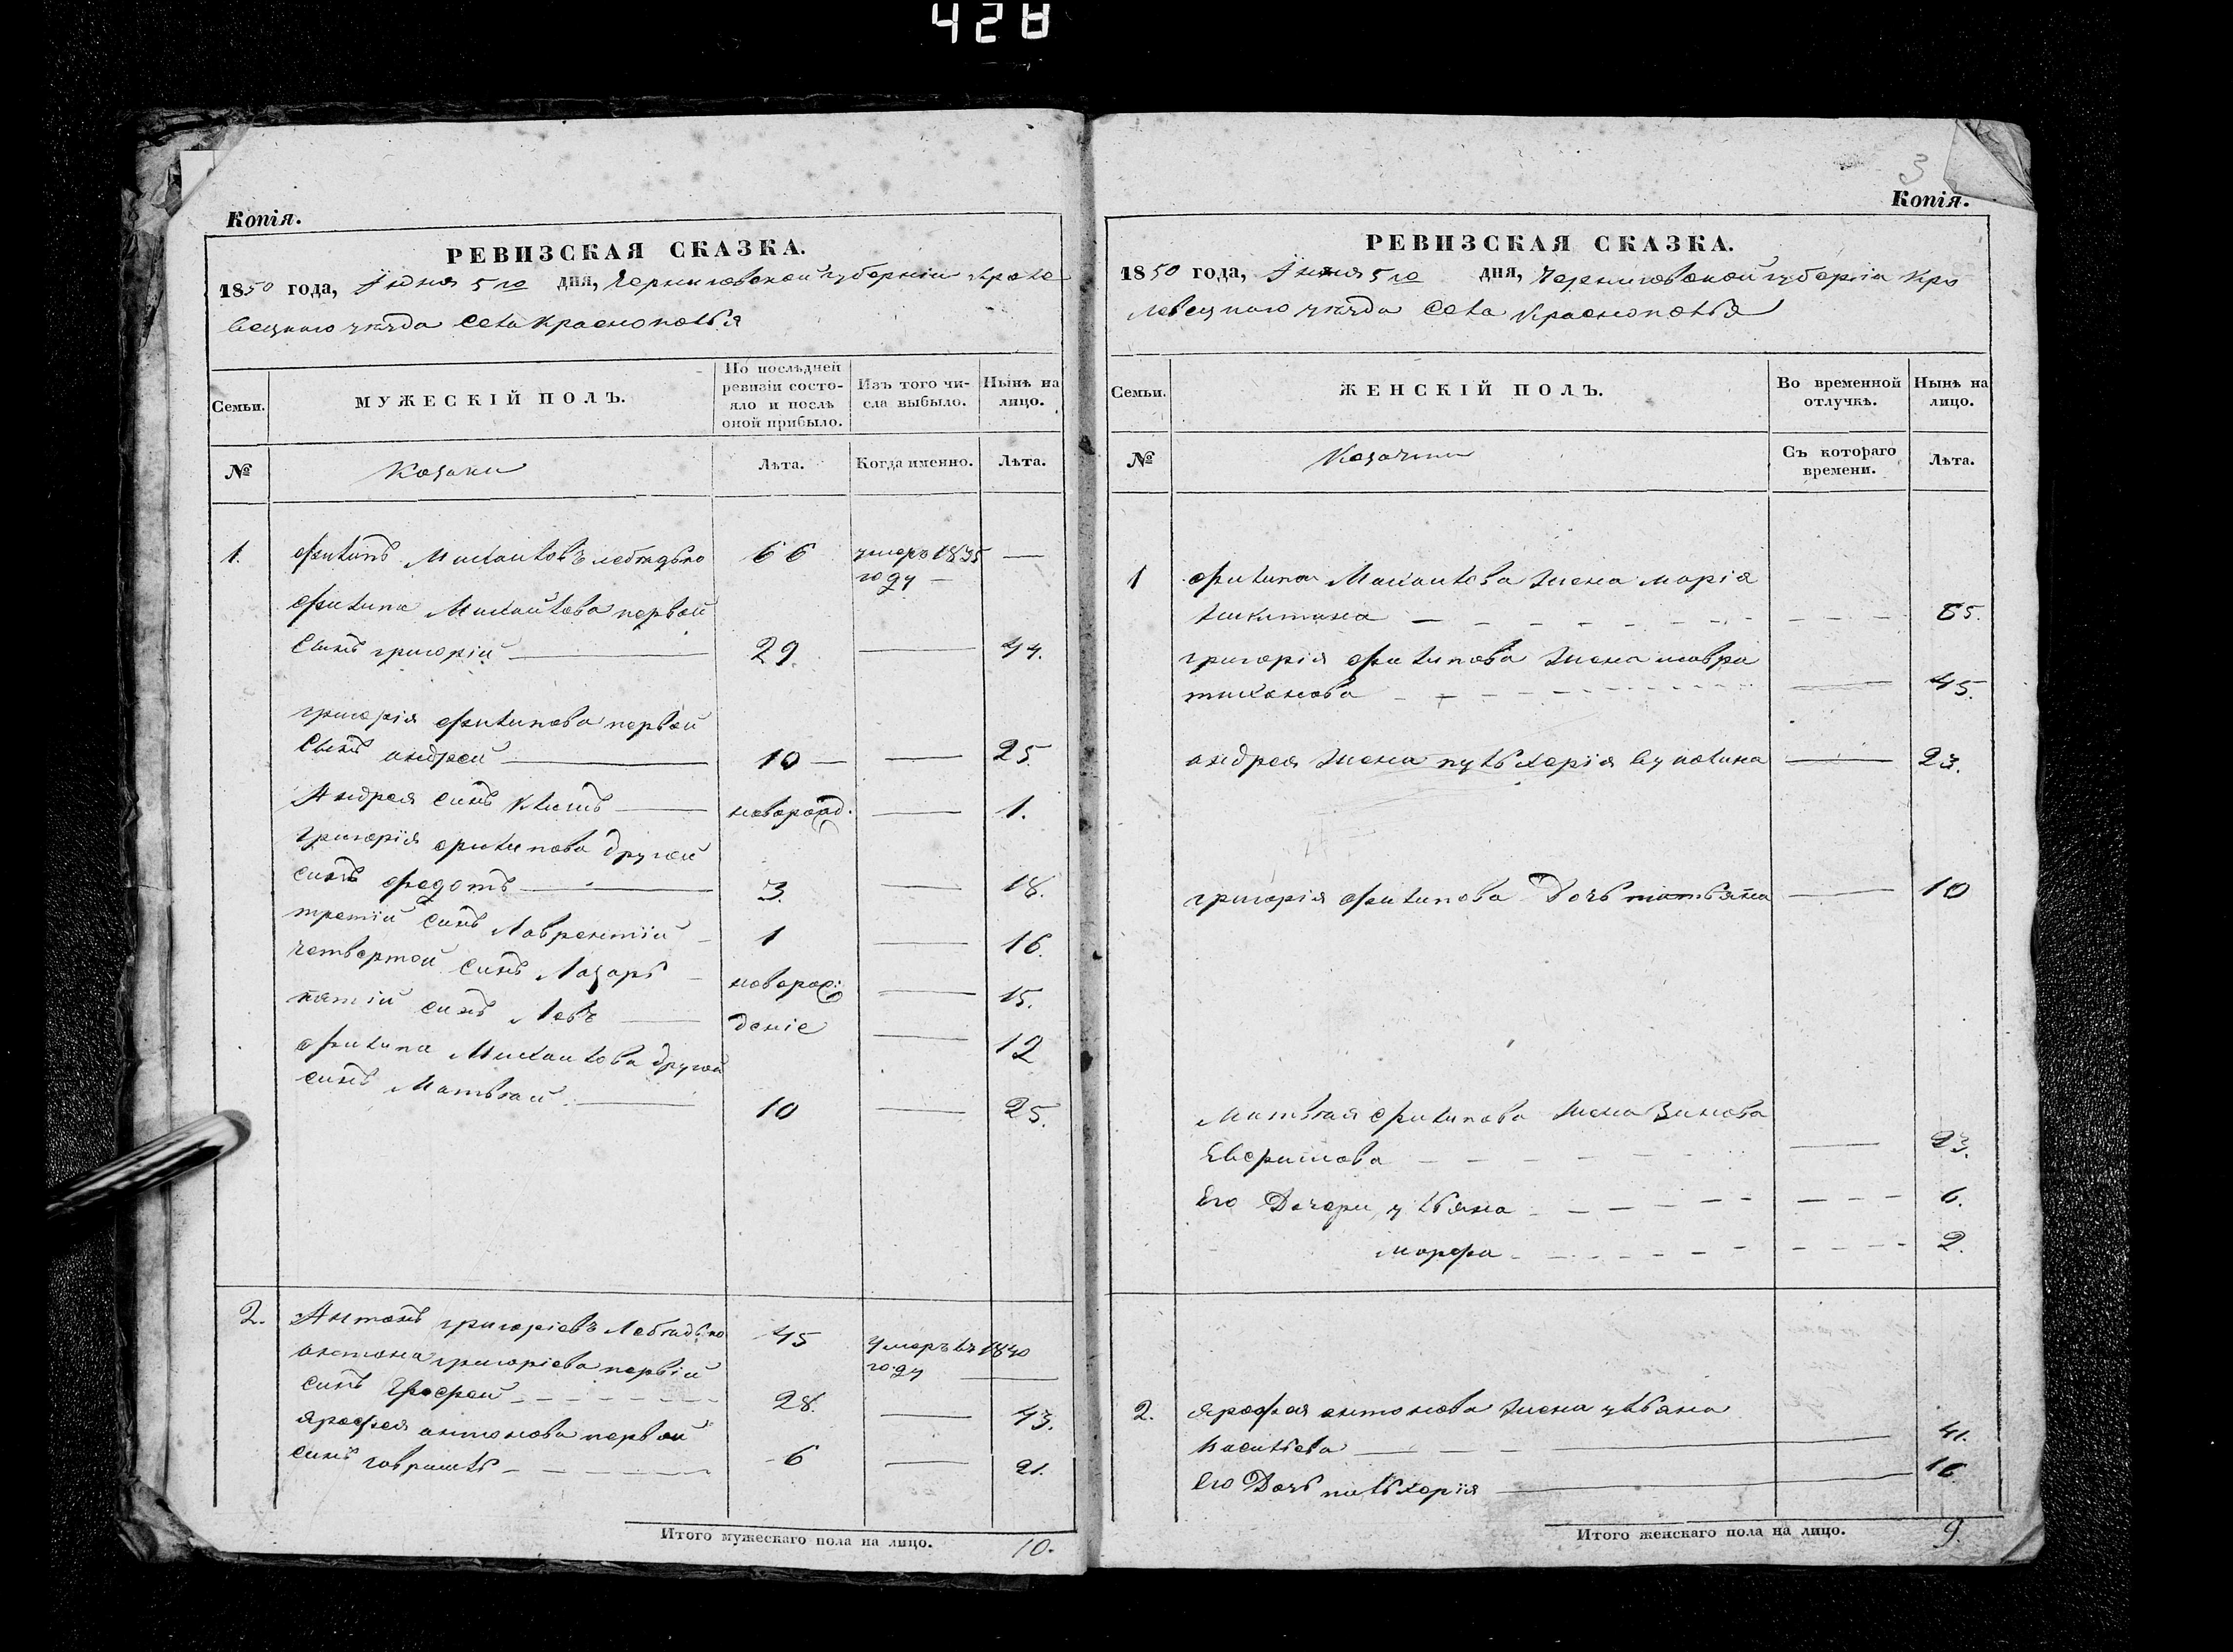 428
Копія.
РЕВИЗСКАЯ СКАЗКА.
1850 года, Іюня 5го дня, Черниговской губерніи Кроле
вецкого уезда Села Краснополья
Семьи.
МУЖЕСКІЙ ПОЛЪ.
По послѣдней
ревизіи состо-
яло и послѣ
оной прибыло.
Изъ того чи-
сла выбыло.
Нынѣ на
лицо.
№
Козаки
Лѣта.
Когда именно.
Лѣта.
1. Филипъ Михаиловъ 66 умеръ 1835 —
году —
Филипа Михайлова первой
Сынъ григорій 29. — 44.
григорія Филипова первой
Сынъ андрей 10 — — 25.
Андрея синъ Климъ новорожд. — 1.
григорія Филипова другой
синъ Федотъ 3. — 18.
третій синъ Лаврентій 1 — 16.
четвертой синъ Лазарь — 15.
пятій синъ Левъ деніе — 12
Филипа Михаилова другой
синъ Матвей 10 — 25.
2. Антонъ григоріевъ 45 умеръ въ 1840
антона григоріева первій году —
синъ Ерофей 28. — 43.
ярофея антонова первой
синъ гаврило 6 — 21.
Итого мужескаго пола на лицо. 10.
3
Копія.
РЕВИЗСКАЯ СКАЗКА.
1850 года, Іюня 5го дня, Черниговской губерніи Кро
левецкого уезда Села Краснополья
Семьи.
ЖЕНСКІЙ ПОЛЪ.
Во временной
отлучкѣ.
Нынѣ на
лицо.
№
Козачки
Съ котораго
времени.
Лѣта.
1 Филипа Михаилова жена марія
никитина 65.
григорія Филипова жена мавра
тихонова — 45.
андрея жена пульхерія — 23.
григорія Филипова Дочь татьяна — 10
Матвея Филипова жена Зиновія
— 23.
Его Дочери, ульяна 6.
марфа 2.
2. ярофея антонова жена ульяна
васильева — 41.
Его Дочь пульхерія — 16.
Итого женскаго пола на лицо. 9.